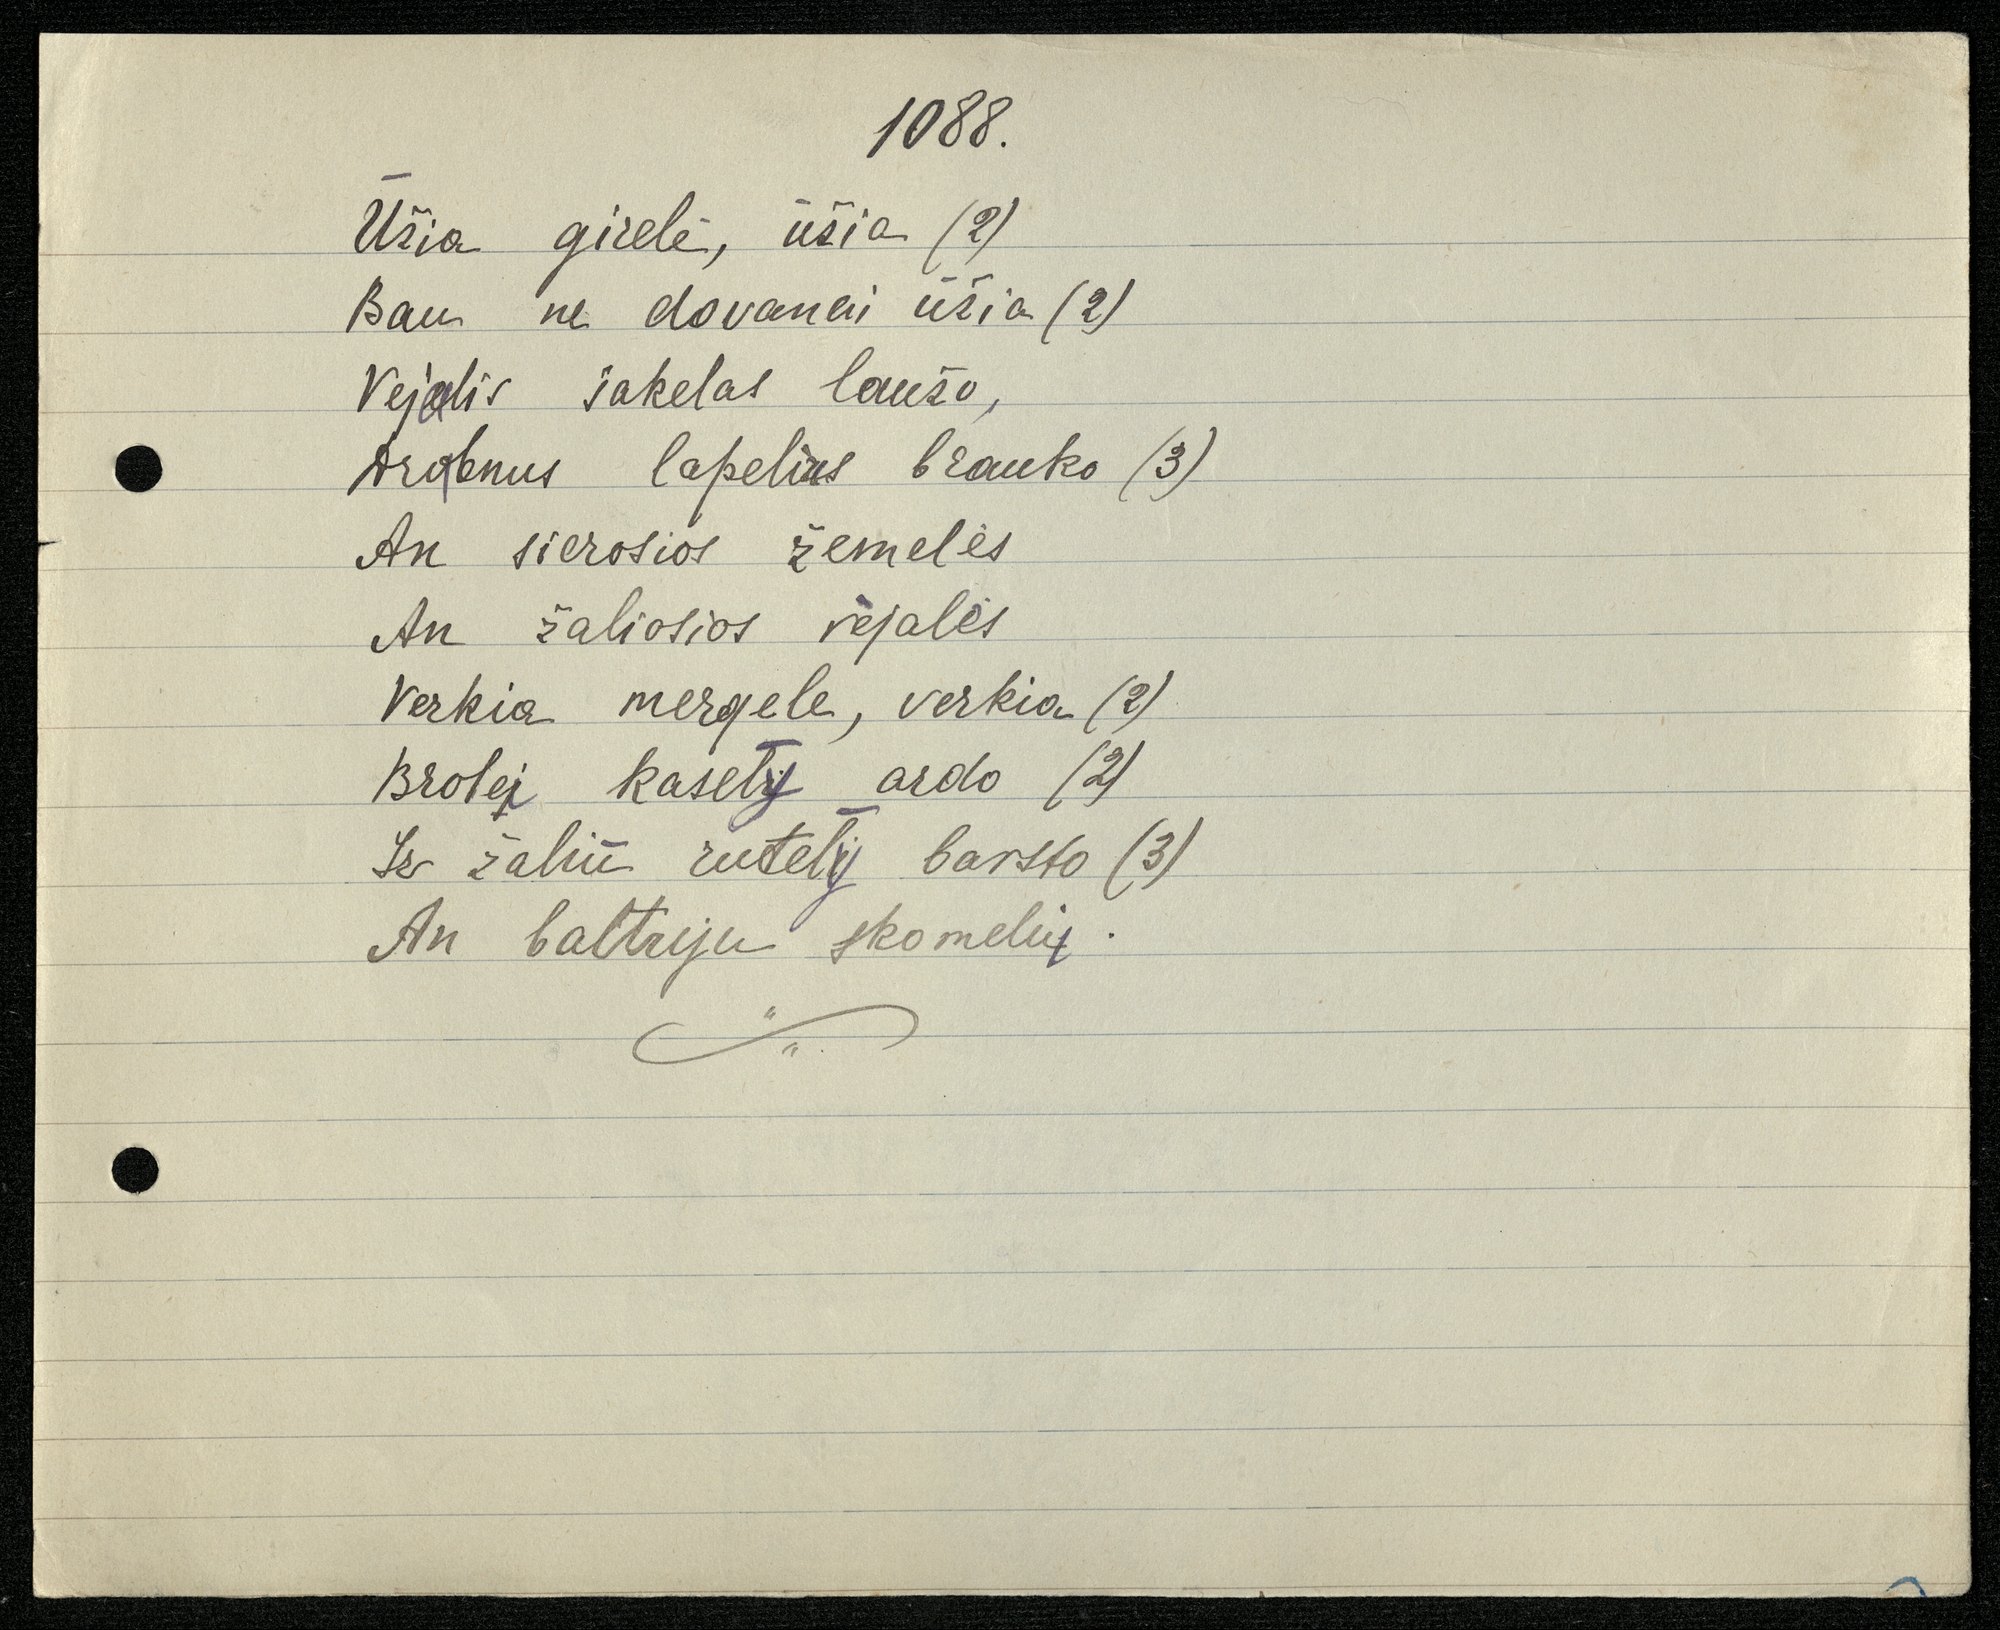 1088.
Ūžia girelė, ūžia (2)
Bau ne dovanai ūžia (2)
Vejalis šakelas laužo,
Drabnus lapelius brauko (3)
An sierosios žemelės
An žaliosios vėjalės
Verkia mergele, verkia (2)
Brolej kasely ardo (2)
Ir žaliū rutely barsto (3)
An baltruju skomelių.